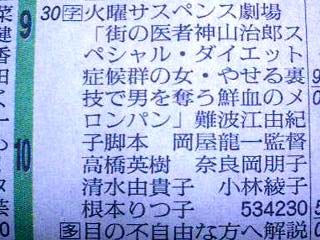 9
10
30字火曜サスペンス劇場
「街の医者神山治郎ス
ペシャル・ダイエット
症候群の女・やせる裏
技で男を奪う鮮血のメ
ロンパン」難波江由紀
子脚本 岡屋龍一監督
高橋英樹 奈良岡朋子
清水由貴子 小林綾子
根本りつ子 534230
多目の不自由な方へ解説